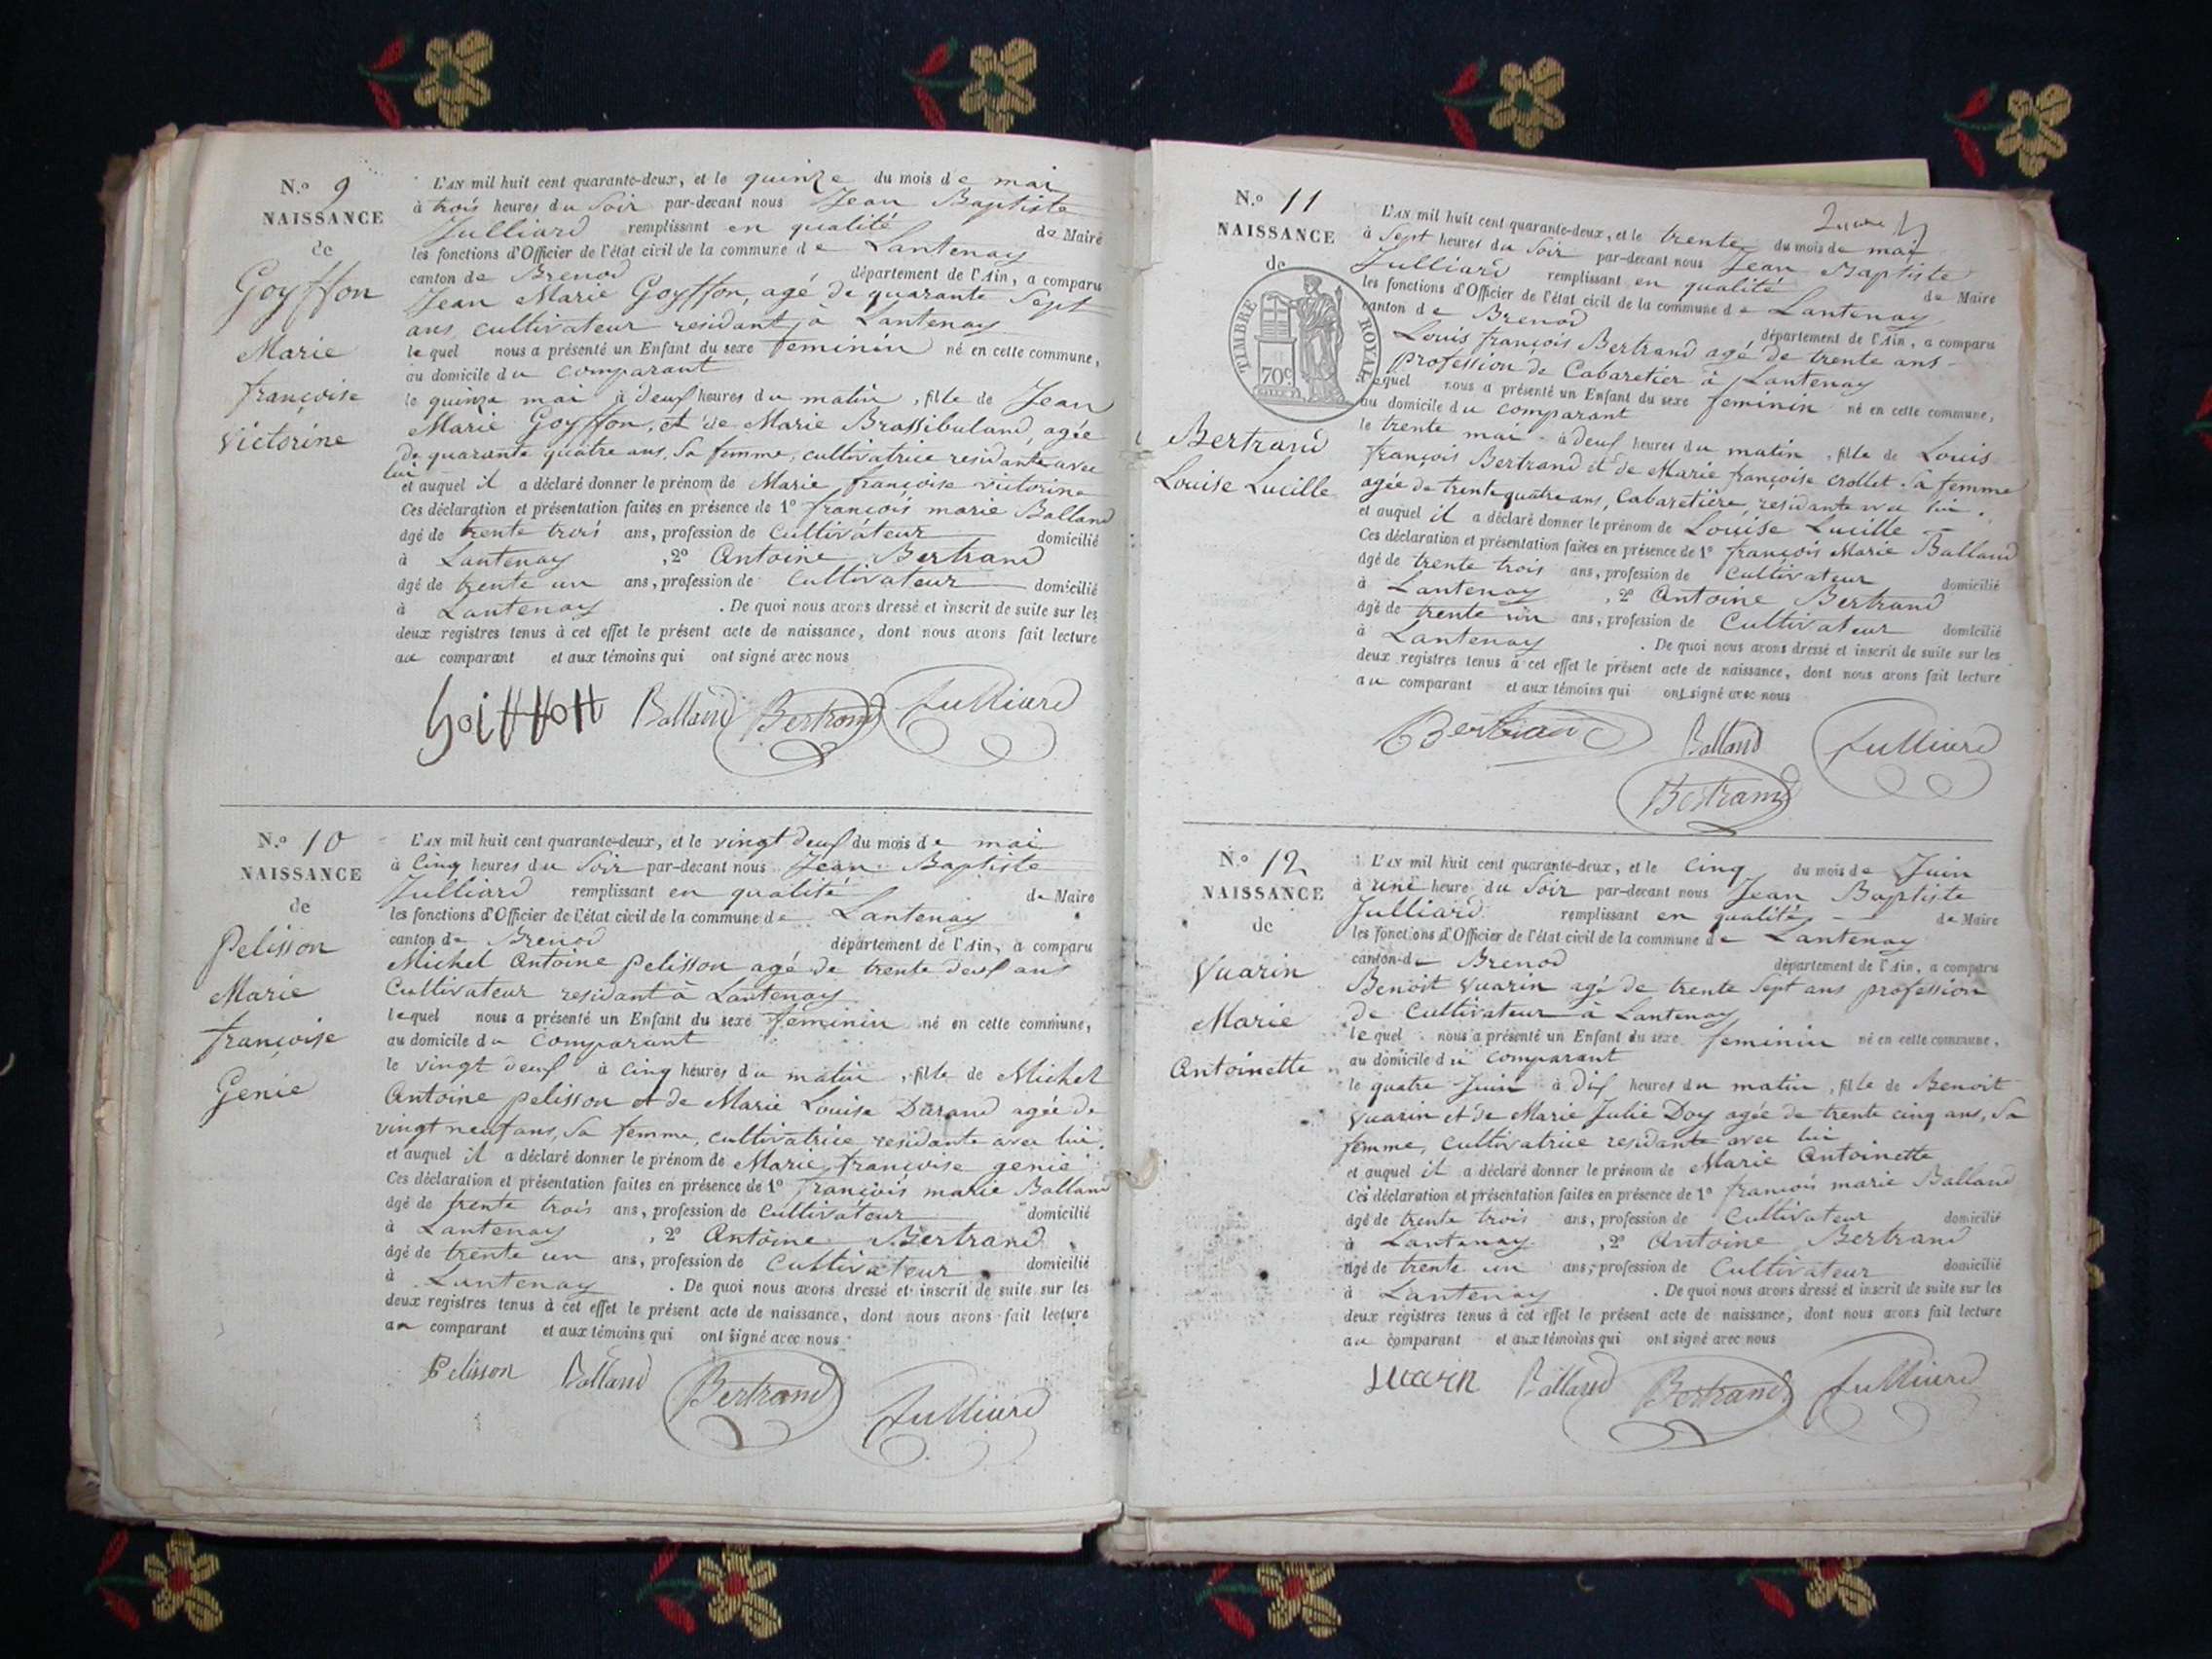 N.º 9
NAISSANCE
de
Goyffon
Marie
françoise
victorine
L'AN mil huit cent quarante-deux, et le quinze du mois de mai
à trois heures du soir par-devant nous Jean Baptiste
Julliard remplissant en qualité de Maire
les fonctions d'Officier de l'état civil de la commune de Lantenay
canton de Brenod département de l'Ain, a comparu
Jean Marie Goyffon, agé de quarante sept
ans, cultivateur residant, à Lantenay
lequel nous a présenté un Enfant du sexe feminin né en cette commune,
au domicile du comparant
le quinze mai à deux heures du matin, fille de Jean
Marie Goyffon, et de Marie Brassibuland, agée
de quarante quatre ans, sa femme, cultivatrice residante avec
lui
et auquel il a déclaré donner le prénom de Marie françoise victorine
Ces déclaration et présentation faites en présence de 1º françois marie Balland
âgé de trente trois ans, profession de cultivateur domicilié
à Lantenay, 2º Antoine Bertrand
âgé de trente un ans, profession de cultivateur domicilié
à Lantenay. De quoi nous avons dressé et inscrit de suite sur les
deux registres tenus à cet effet le présent acte de naissance, dont nous avons fait lecture
au comparant et aux témoins qui ont signé avec nous
goiffon Balland Bertrand Julliard
N.º 10
NAISSANCE
de
Pelisson
Marie
françoise
Genie
L'AN mil huit cent quarante-deux, et le vingt deux du mois de mai
à cinq heures du soir par-devant nous Jean Baptiste
Julliard remplissant en qualité de Maire
les fonctions d'Officier de l'état civil de la commune de Lantenay
canton de Brenod département de l'Ain, a comparu
Michel Antoine pelisson agé de trente deux ans
Cultivateur residant à Lantenay
lequel nous a présenté un Enfant du sexe feminin né en cette commune,
au domicile du comparant
le vingt deux à cinq heures du matin, fille de Michel
Antoine pelisson et de Marie Louise Durand agée de
vingt neuf ans, sa femme, cultivatrice residante avec lui.
et auquel il a déclaré donner le prénom de Marie, françoise genie
Ces déclaration et présentation faites en présence de 1º françois marie Balland
âgé de trente trois ans, profession de cultivateur domicilié
à Lantenay, 2º Antoine Bertrand
âgé de trente un ans, profession de cultivateur domicilié
à Lantenay. De quoi nous avons dressé et inscrit de suite sur les
deux registres tenus à cet effet le présent acte de naissance, dont nous avons fait lecture
au comparant et aux témoins qui ont signé avec nous
Pelisson Balland Bertrand Julliard
N.º 11
NAISSANCE
de
TIMBRE ROYAL
70c
Bertrand
Louise Lucille
L'AN mil huit cent quarante-deux, et le trente du mois de mai
à sept heures du soir par-devant nous Jean Baptiste
Julliard remplissant en qualité de Maire
les fonctions d'Officier de l'état civil de la commune de Lantenay
canton de Brenod département de l'Ain, a comparu
Louis françois Bertrand agé de trente ans
profession de Cabaretier à Lantenay
lequel nous a présenté un Enfant du sexe feminin né en cette commune,
au domicile du comparant
le trente mai à deux heures du matin, fille de Louis
françois Bertrand et de Marie françoise crollet sa femme
agée de trente quatre ans, Cabaretière, residante avec lui.
et auquel il a déclaré donner le prénom de Louise Lucille
Ces déclaration et présentation faites en présence de 1º françois Marie Balland
âgé de trente trois ans, profession de cultivateur domicilié
à Lantenay, 2º Antoine Bertrand
âgé de trente un ans, profession de Cultivateur domicilié
à Lantenay. De quoi nous avons dressé et inscrit de suite sur les
deux registres tenus à cet effet le présent acte de naissance, dont nous avons fait lecture
au comparant et aux témoins qui ont signé avec nous
Bertrand Balland Julliard
Bertrand
N.º 12
NAISSANCE
de
Vuarin
Marie
Antoinette
L'AN mil huit cent quarante-deux, et le cinq du mois de Juin
à une heure du soir par-devant nous Jean Baptiste
Julliard remplissant en qualité de Maire
les fonctions d'Officier de l'état civil de la commune de Lantenay
canton de Brenod département de l'Ain, a comparu
Benoit Vuarin agé de trente sept ans profession
de Cultivateur à Lantenay
lequel nous a présenté un Enfant du sexe feminin né en cette commune,
au domicile du comparant
le quatre Juin à dix heures du matin, fille de Benoit
Vuarin et de Marie Julie Doy agée de trente cinq ans, sa
femme, cultivatrice residante avec lui
et auquel il a déclaré donner le prénom de Marie Antoinette
Ces déclaration et présentation faites en présence de 1º françois marie Balland
âgé de trente trois ans, profession de Cultivateur domicilié
à Lantenay, 2º Antoine Bertrand
âgé de trente un ans, profession de Cultivateur domicilié
à Lantenay. De quoi nous avons dressé et inscrit de suite sur les
deux registres tenus à cet effet le présent acte de naissance, dont nous avons fait lecture
au comparant et aux témoins qui ont signé avec nous
vuarin Balland Bertrand Julliard